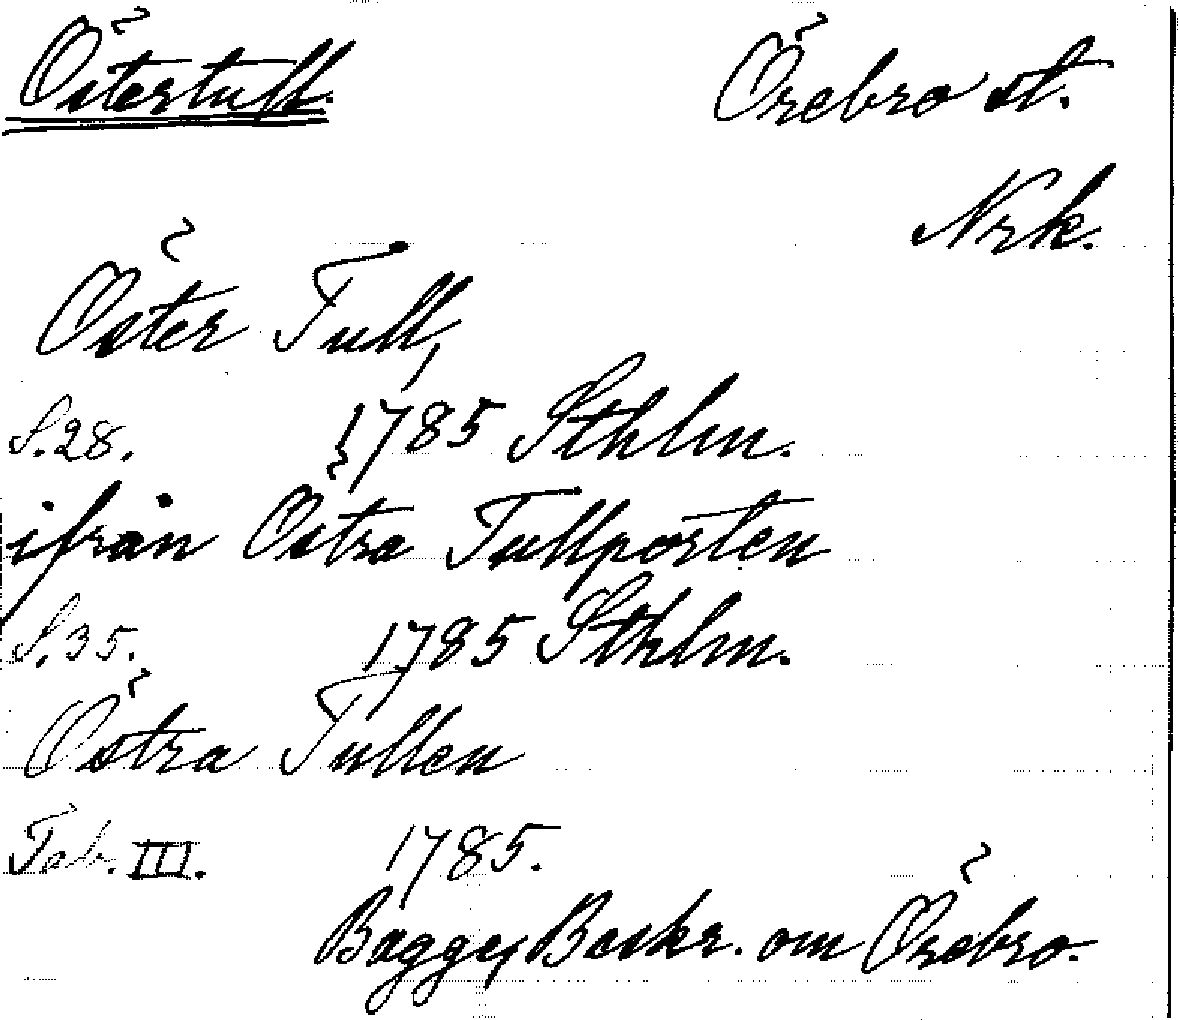 Östertull. Örebro st.
Nrk.
Öster Tull,
S. 28. 1785 Sthlm.
ifrån Östra Tullporten
S. 35. 1785 Sthlm.
Östra Tullen
Tab. III. 1785.
Bagge, Beskr. om Örebro.